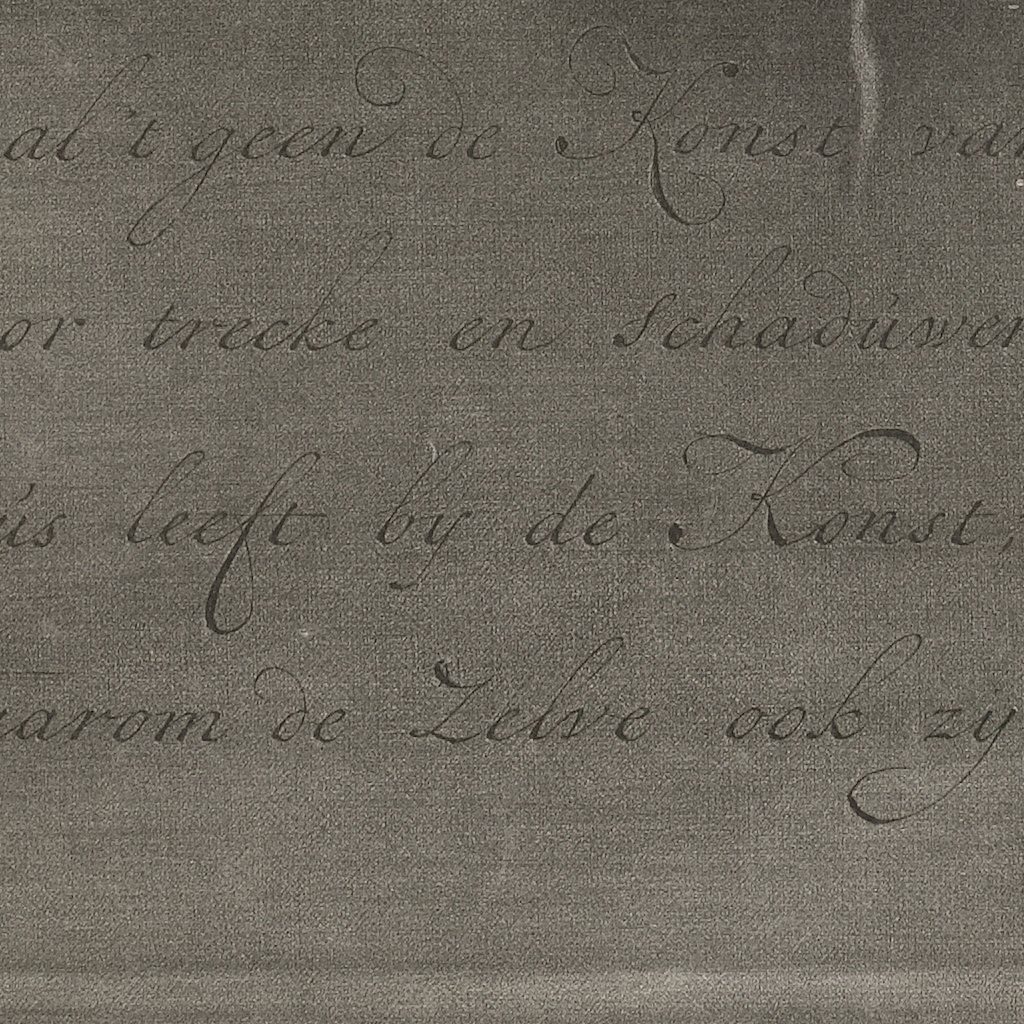 al 't geen de Konst van
or trecke en schadúwen
ús leeft by de Konst;
aarom de Zelve ook zy